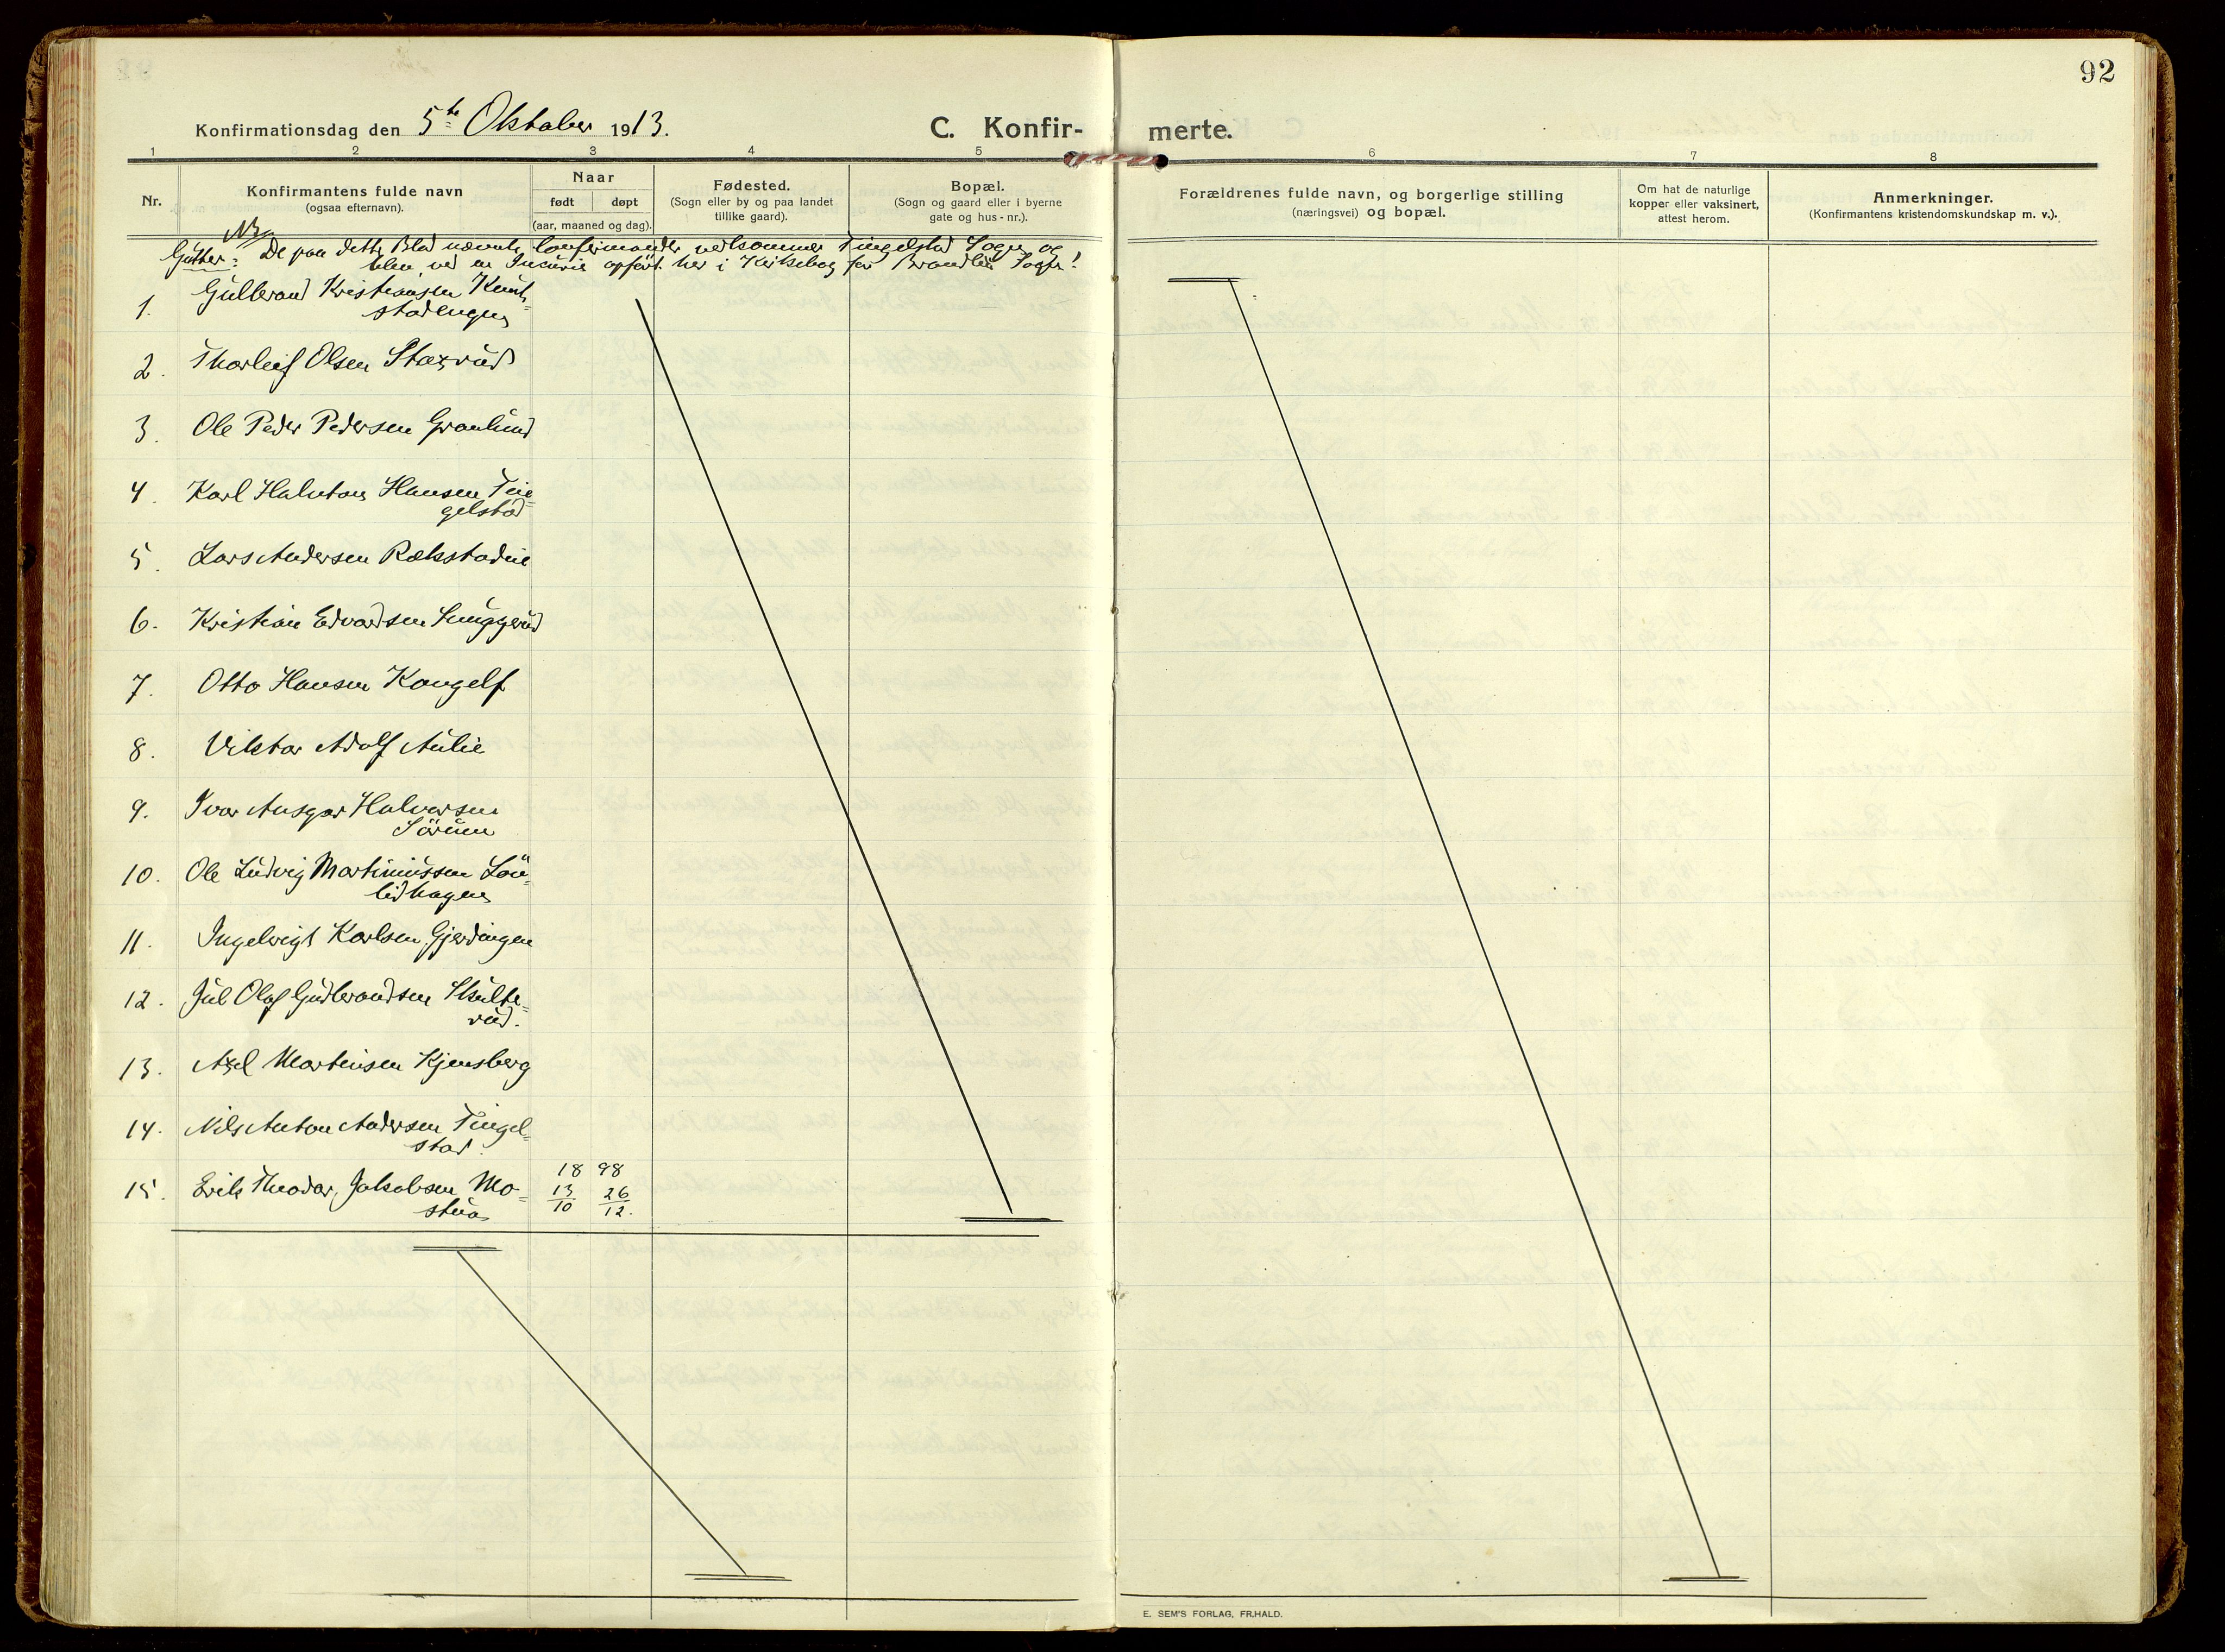 92
Konfirmationsdag den 5te Oktober 1913.
C. Konfir-
merte.
1 2 3 4 5 6 7 8
Nr.
Konfirmantens fulde navn
(ogsaa efternavn).
Naar
født døpt
(aar, maaned og dag).
Fødested.
(Sogn eller by og paa landet
tillike gaard).
Bopæl.
(Sogn og gaard eller i byerne
gate og hus-nr.).
Forældrenes fulde navn, og borgerlige stilling
(næringsvei) og bopæl.
Om hat de naturlige
kopper eller vaksinert,
attest herom.
Anmerkninger.
(Konfirmantens kristendomskundskap m. v.).
NB
Gutter: De paa dette Blad nævnte Confirmander vedkommer Tingelstad Sogn og
blev ved en Incurie opført her i Kirkebog for Brandbu Sogn!
1. Gulbrand Kristiansen
stadengen
2. Thorleif Olsen Staxrud
3. Ole Peder Pedersen Granlund
4. Karl Halvton Hansen Tin=
gelstad
5. Lars Andersen Rækstadlie
6. Kristian Edvardsen
7. Otto Hansen Kongelf
8. Viktor Adolf Aulie
9. Ivar Ansgar Halvorsen
Sörum
10. Ole Ludvig Martiniussen Lön=
lidhagen
11. Ingebrigt Karlsen Gjerdingen
12. Jul Olaf Gudbrandsen Skute=
rud.
13. Axel Martinsen Kjensberg
14. Nils Anton Andersen Tingel=
stad.
15. Erik Theodor Jakobsen Mo=
stua
18 98
13 26
10 12.
E. SEM'S FORLAG, FR.HALD.